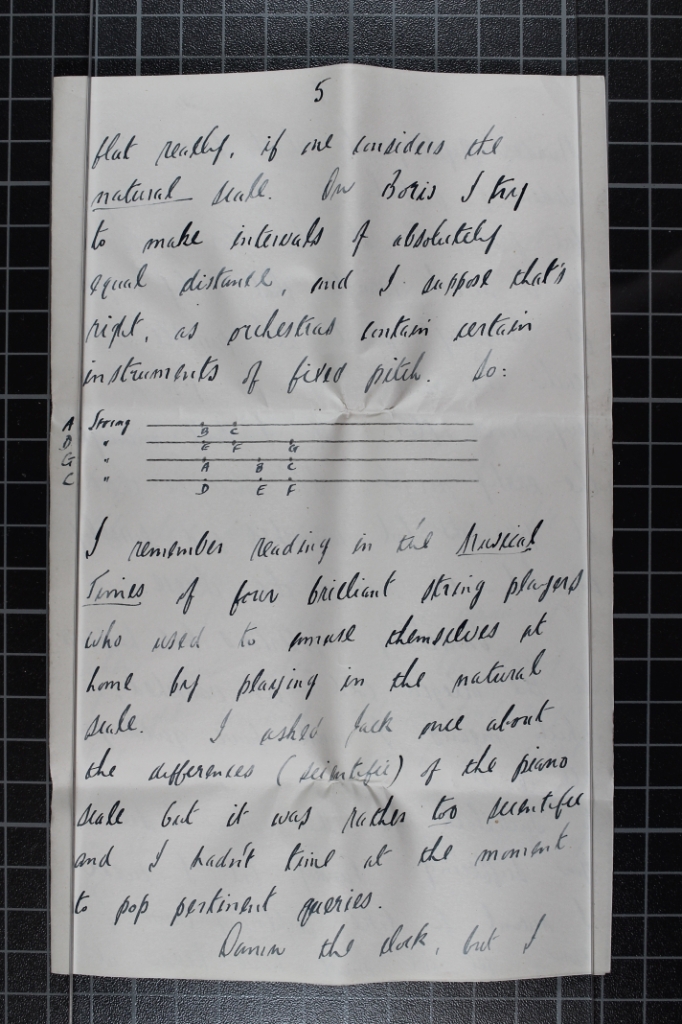 5
flat really, if one considers the
natural scale. On Boris I try
to make intervals of absolutely
equal distance, and I suppose that's
right, as orchestras contain certain
instruments of fixed pitch. So:
A String B C
D " E F G
G " A B C
C " D E F
I remember reading in the Musical
Times of four brilliant string players
who used to amuse themselves at
home by playing in the natural
scale. I asked Jack once about
the differences (scientific) of the piano
scale but it was rather too scientific
and I hadn't time at the moment
to pop pertinent queries.
Damn the clock, but I